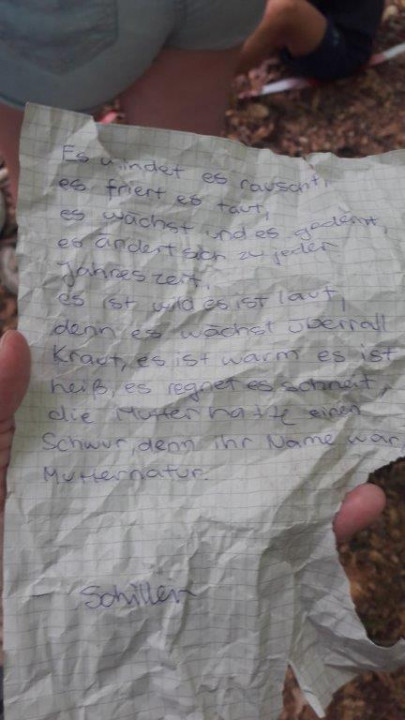 Es windet es rauscht,
es friert es taut,
es wächst und es gedeiht,
es ändert sich zu jeder
Jahreszeit,
es ist wild es ist laut,
denn es wächst überrall
Kraut, es ist warm es ist
heiß, es regnet es schneit,
die Mutter hatte einen
Schwur, denn ihr Name war,
Mutternatur.
- Schiller